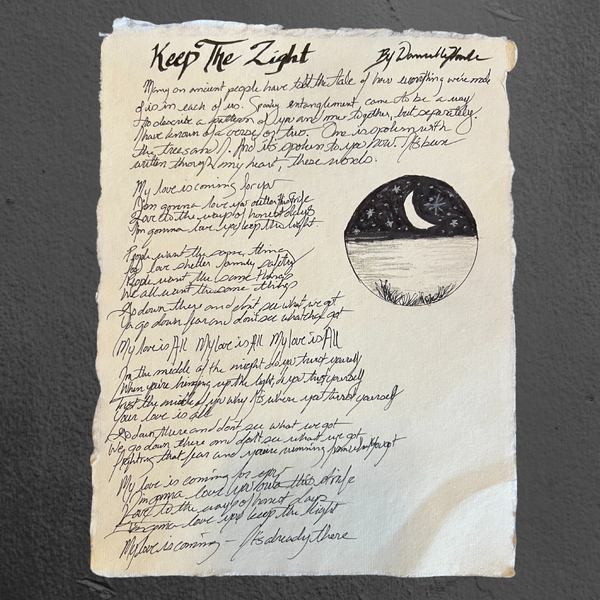 Keep The Light
By Donnella
Many an ancient people have told the tale of how everything we're made
of is in each of us. Spooky entanglement came to be a way
to describe a pattern of you and me together, but separately.
I have known of a verse or two. One is spoken with
the trees and And it's spoken to you now. It's been
written through my heart, these words.
My love is coming for you
I'm gonna love you this
Love is the way of honest days
I'm gonna love you keep this light
People want the same things
For love shelter family safety
People want the same things
We all want the same things
Go down there and don't see what we got
Ya go down fear and don't see got
My love is All My love is All My love is All
In the middle of the midnight do you trust yourself
When you're bringing up the light, do you trust yourself
Trust the middle of you it's where you trust yourself
Your love is all
Go down there and don't see what we got
We go down there and don't see what we got
that fear and you're running from what you got
My love is coming for you
I'm gonna love you this
Love to the ways of honest days
I'm gonna love you keep the light
My love is coming – It's already there